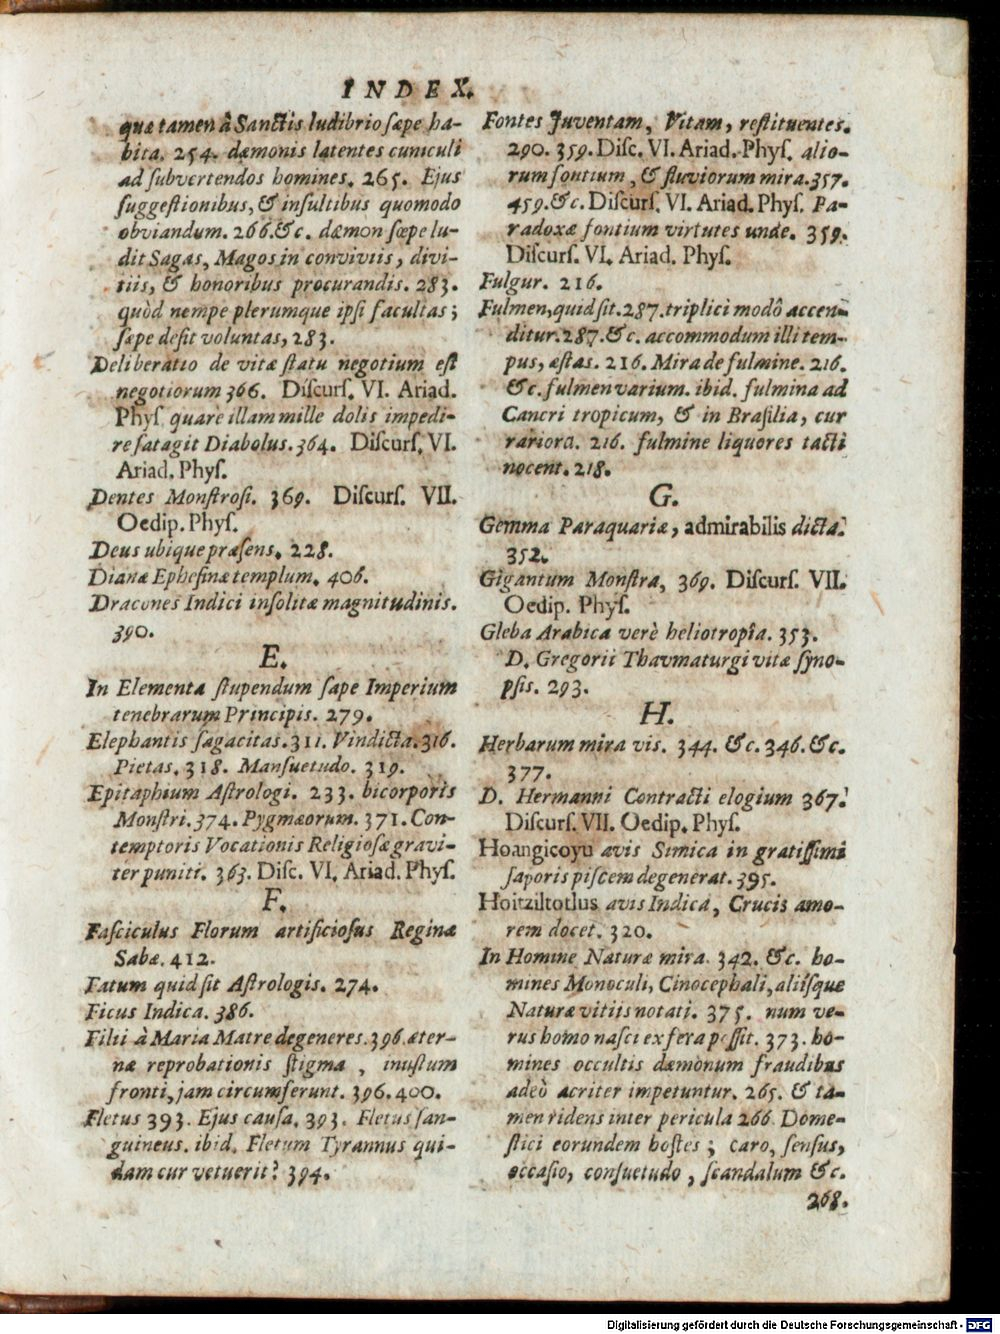 INDEX.
quæ tamen à Sanctis ludibrio sæpe ha-
bita. 254. dæmonis latentes cuniculi
ad subvertendos homines. 265. Ejus
suggestionibus, & insultibus quomodo
obviandum. 266. &c. dæmon sæpe lu-
dit Sagas, Magos in conviviis, divi-
tiis, & honoribus procurandis. 283.
quòd nempe plerumque ipsi facultas;
sæpe desit voluntas, 283.
Deliberatio de vitæ statu negotium est
negotiorum 366. Discurs. VI. Ariad.
Phys quare illam mille dolis impedi-
re satagit Diabolus. 364. Discurs. VI.
Ariad. Phys.
Dentes Monstrosi. 369. Discurs. VII.
Oedip. Phys.
Deus ubique præsens. 228.
Dianæ Ephesinæ templum. 406.
Dracones Indici insolitæ magnitudinis.
390.
E.
In Elementa stupendum sæpe Imperium
tenebrarum Principis. 279.
Elephantis sagacitas. 311. Vindicta. 316.
Pietas. 318. Mansuetudo. 319.
Epitaphium Astrologi. 233. bicorporis
Monstri. 374. Pygmæorum. 371. Con-
temptoris Vocationis Religiosæ gravi-
ter puniti. 363. Disc. VI. Ariad. Phys.
F.
Fasciculus Florum artificiosus Reginæ
Sabæ. 412.
Fatum quid sit Astrologis. 274.
Ficus Indica. 386.
Filii à Maria Matre degeneres. 396. æter-
næ reprobationis stigma, inustum
fronti, jam circumferunt. 396. 400.
Fletus 393. Ejus causa. 393. Fletus san-
guineus. ibid. Fletum Tyrannus qui-
dam cur vetuerit? 394.
Fontes Juventam, Vitam, restituentes.
290. 359. Disc. VI. Ariad. Phys. alio-
rum fontium, & fluviorum mira. 357.
459. &c. Discurs. VI. Ariad. Phys. Pa-
radoxæ fontium virtutes unde. 359.
Discurs. VI. Ariad. Phys.
Fulgur. 216.
Fulmen, quid sit. 287. triplici modô accen-
ditur. 287. &c. accommodum illi tem-
pus, æstas. 216. Mira de fulmine. 216.
&c. fulmen varium. ibid. fulmina ad
Cancri tropicum, & in Brasilia, cur
rariora. 216. fulmine liquores tacti
nocent. 218.
G.
Gemma Paraquariæ, admirabilis dicta.
352.
Gigantum Monstra, 369. Discurs. VII.
Oedip. Phys.
Gleba Arabica verè heliotropia. 353.
D. Gregorii Thavmaturgi vitæ syno-
psis. 293.
H.
Herbarum mira vis. 344. &c. 346. &c.
377.
D. Hermanni Contracti elogium 367.
Discurs. VII. Oedip. Phys.
Hoangicoyu avis Simica in gratissimi
saporis piscem degenerat. 395.
Hoitziltotlus avis Indica, Crucis amo-
rem docet. 320.
In Homine Naturæ mira. 342. &c. ho-
mines Monoculi, Cinocephali, aliisque
Naturæ vitiis notati. 375. num ve-
rus homo nasci ex fera possit. 373. ho-
mines occultis dæmonum fraudibus
adeò acriter impetuntur. 265. & ta-
men rident inter pericula 266. Dome-
stici eorundem hostes; caro, sensus,
occasio, consuetudo, scandalum &c.
268.
Digitalisierung gefördert durch die Deutsche Forschungsgemeinschaft - DFG